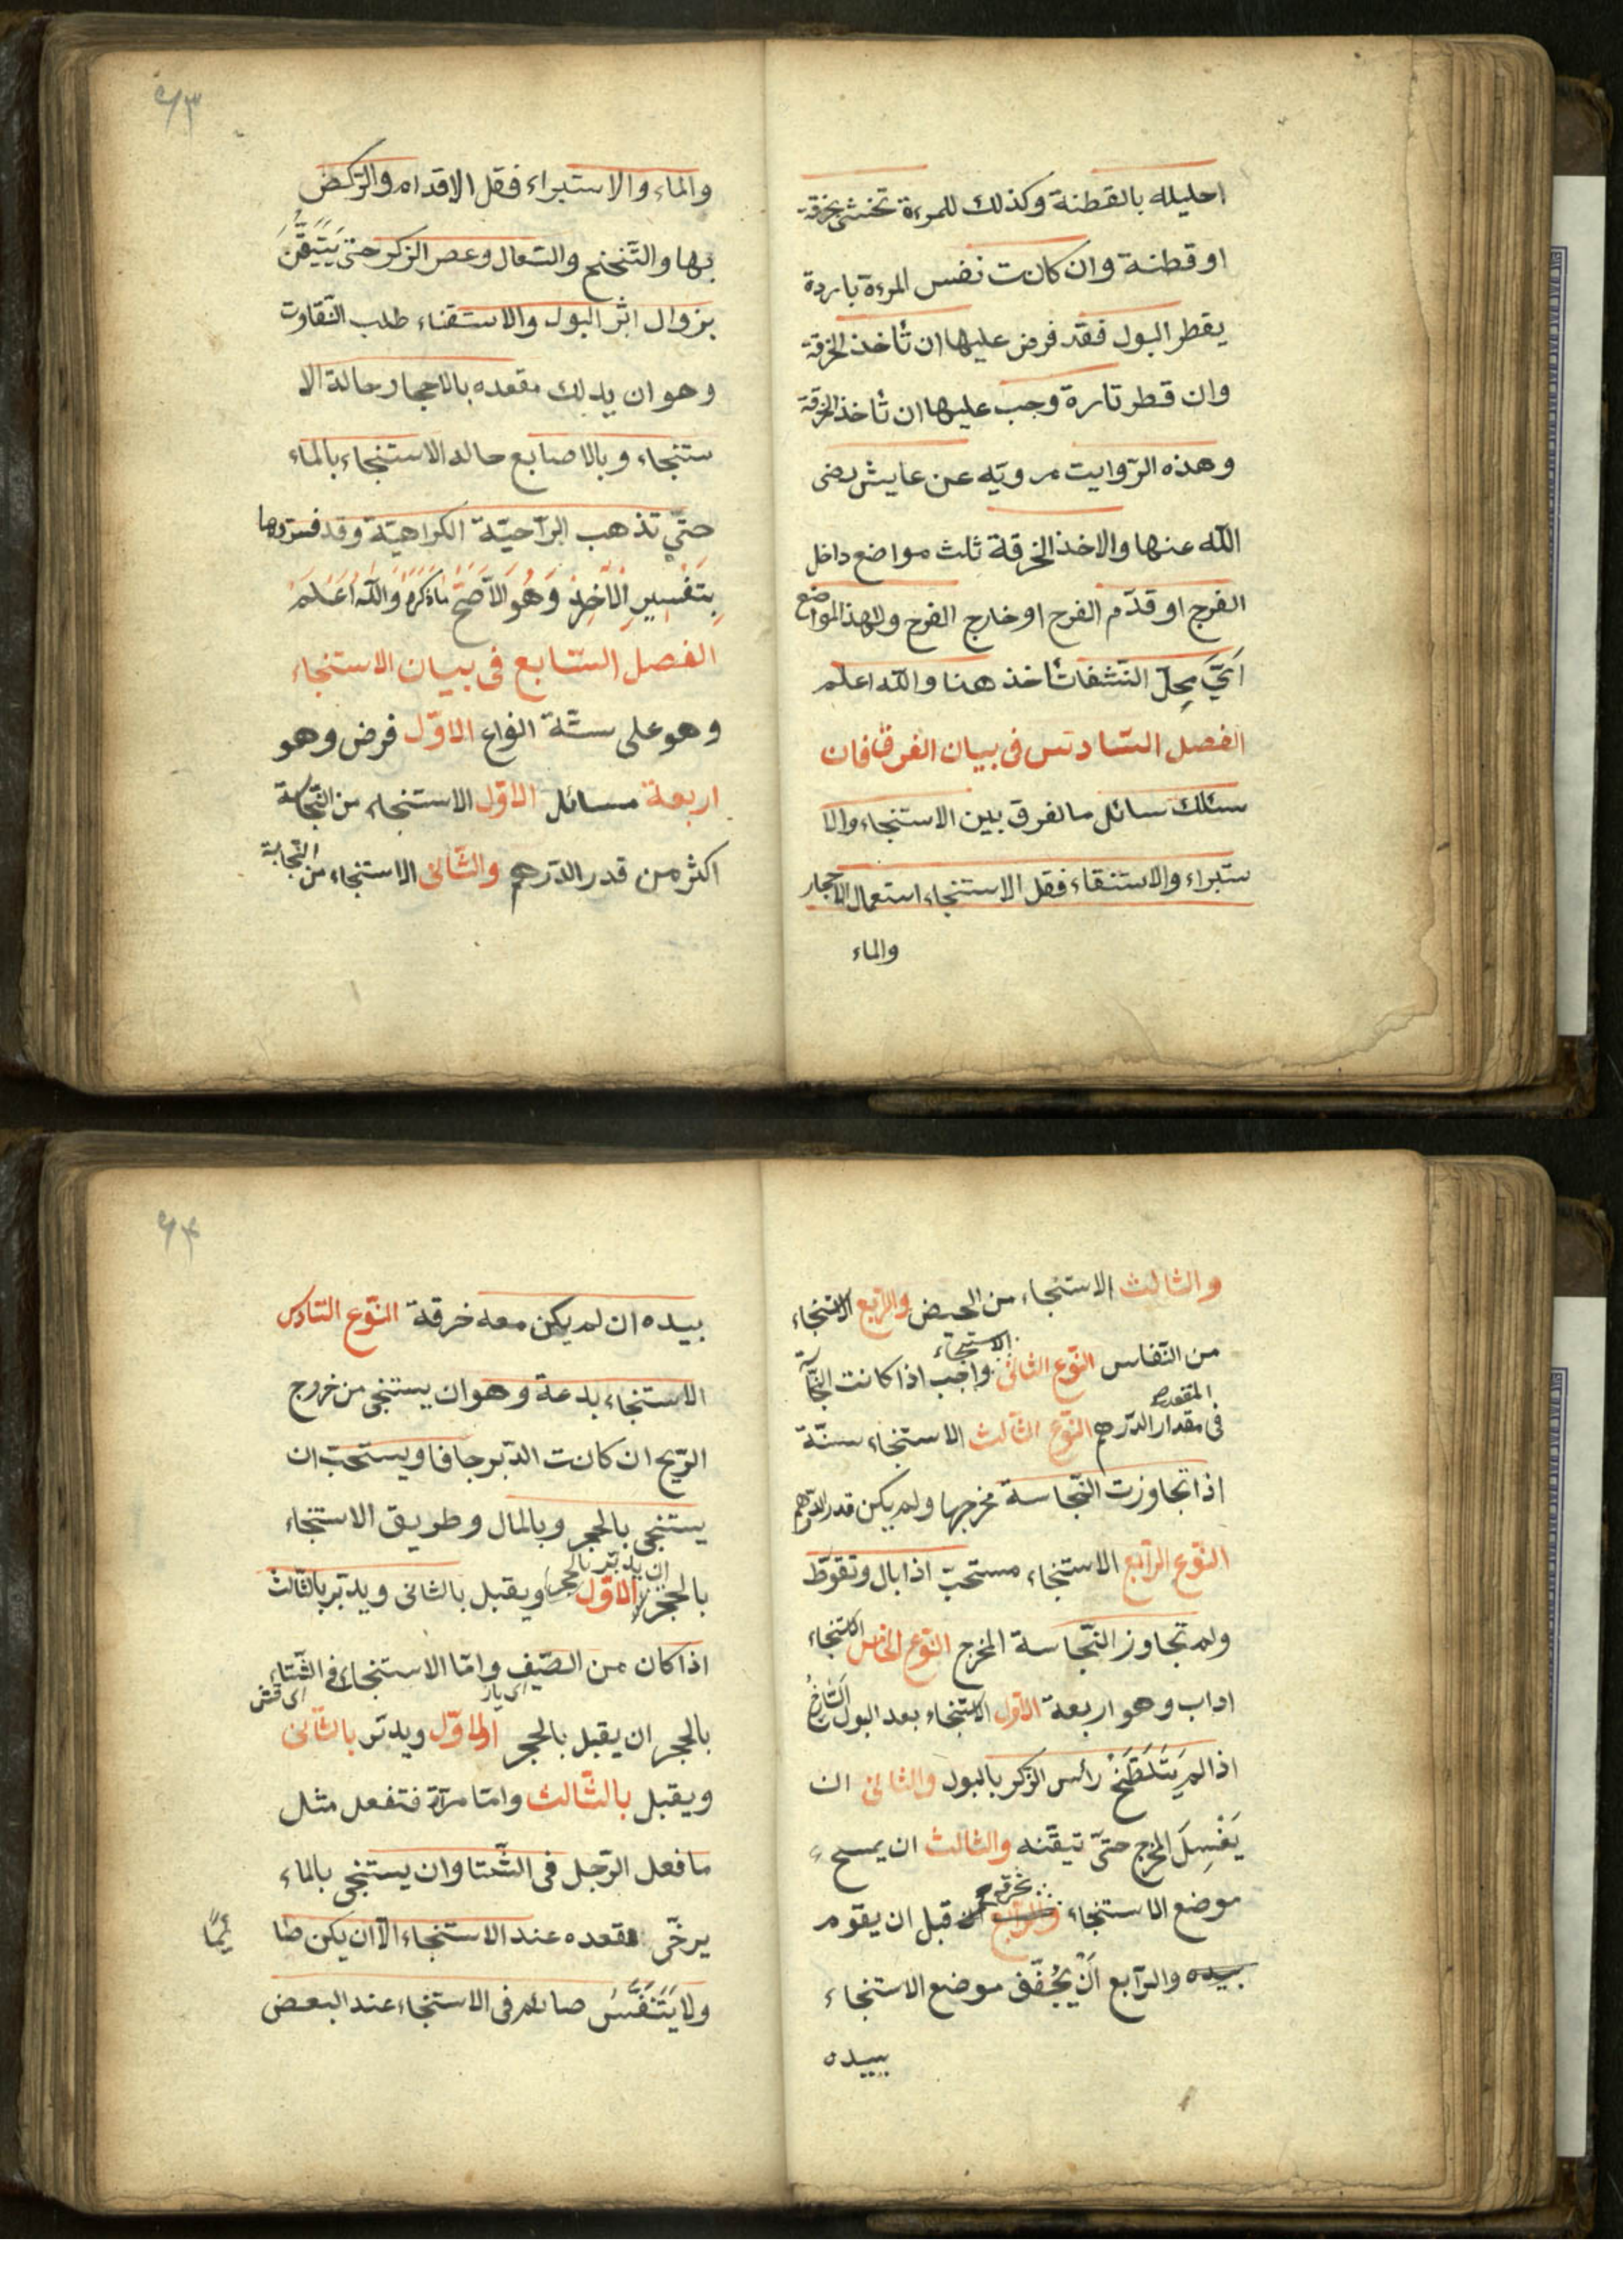 احليله بالقطنة وكذلك للمرءة تحتشى بخرقة
او قطنة وان كانت نفس المرءة باردة
يقطر البول فقد فرض عليها ان تأخذ الخرقة
وان قطر تارة وجب عليها ان تأخذ الخرقة
وهذه الروايت مرويه عن عايش رضى
الله عنها والاخذ الخرقة ثلث مواضع داخل
الفرج او قدّم الفرج او خارج الفرج ولهذا المواضع
اَىَّ مِحلّ النّشفات تأخذ هنا والله اعلم
الفصل السّادس فى بيان الفرق فان
سئلك سائل ما لفرق بين الاستنجاء والا
ستبراء والاستنقاء فقل الاستنجاء استعمال الاحجار
والماء
٦٣
والماء والاستبراء فقل الاقدام والرّكض
بها والتّنحنح والسّعال وعصر الزكر حتى يَتَيَقَّنُ
بزوال اثر البول والاستقناء طلب النّقاوت
وهو ان يدلك مقعده بالاحجار حالة الا
ستنجاء وبالاصابع حاله الاستنجاء بالماء
حتّى تذهب الرّآحيّة الكراهيّة وقد فسّروها
بِتَفْسِيرِ الْآخِرِ وَهُوَ الْاَصَحُّ مَاذَكَرَهُ وَاللّٰهُ اَعْلَمُ
الفصل السّابع فى بيان الاستنجاء
وهو على ستّة انواع الاوّل فرض وهو
اربعة مسائل الاوّل الاستنجاء من النّجاسة
اكثر من قدر الدّرهم والثّانى الاستنجاء من الجنابة
والثالث الاستنجاء من الحيض والرّابع الاستنجاء
من النّفاس النّوع الثّانى واجب اذا كانت النّجآ
الاستنجاء
المقعده
فى مقدار الدّرهم النّوع الثّالث الاستنجاء سنّة
اذا تجاوزت النّجاسة مخرجها ولم يكن قدر الدّرهم
النّوع الرّابع الاستنجاء مستحبّ اذا بال وتغوّط
ولم تجاوز النّجاسة المخرج النّوع الخامس الاستنجاء
اداب وهو اربعة الاوّل الاستنجاء بعد البول
اذا لم يَتَلَطَّخْ رأس الزّكر بالبول والثانى ان
يَغْسِلَ المخرج حتّى تيقّنه والثّالث ان يمسح
موضع الاستنجاء بخرقه قبل ان يقوم
بيده والرّابع اَنْ يُجُفّف موضع الاستنجاء
بيده
٦٤
بيده ان لم يكن معه خرقة النّوع السّادس
الاستنجاء بدعة وهو ان يستنجى من خروج
الرّيح ان كانت الدّبر جافا ويستحبّ ان
يستنجى بالحجر وبالمال وطريق الاستنجاء
ان يدبّر بالحجر
بالحجر الاوّل ويقبل بالثانى ويدبّر بالثّالث
اذا كان من الصّيف وامّا الاستنجاء فى الشّتاء
بالحجر ان يقبل بالحجر الاوّل ويدبّر بالثّانى
ويقبل بالثّالث وامّا مرآة فتفعل مثل
ما فعل الرّجل فى الشّتا وان يستنجى بالماء
يرخّى مقعده عند الاستنجاء الّا ان يكن صا
ئمًا
ولا يَتَنَفَّسُ صائم فى الاستنجاء عند البعض